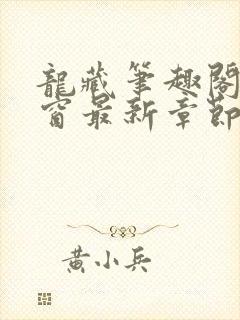 龍藏筆趣閣
窗最新章節
黃小兵